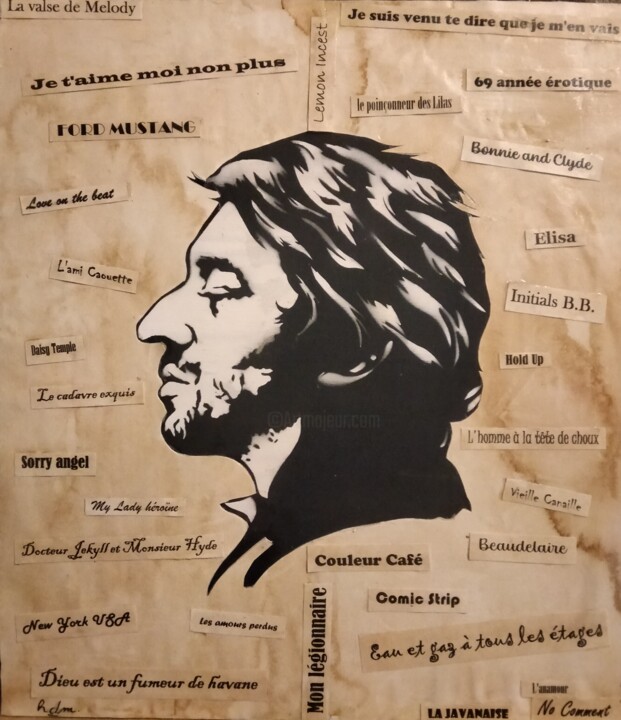 La valse de Melody
Je suis venu te dire que je m'en vais
Lemon Incest
Je t'aime moi non plus
69 année érotique
le poinçonneur des Lilas
FORD MUSTANG
Bonnie and Clyde
Love on the beat
Elisa
L'ami Caouette
Initials B.B.
Daisy Temple
Hold Up
Le cadavre exquis
©Artmajeur.com
L'homme à la tête de choux
Sorry angel
Vieille Canaille
My Lady héroïne
Docteur Jekyll et Monsieur Hyde
Beaudelaire
Couleur Café
Mon légionnaire
Comic Strip
New York USA
Les amours perdus
Eau et gaz à tous les étages
Dieu est un fumeur de havane
L'anamour
hdm
LA JAVANAISE
No Comment